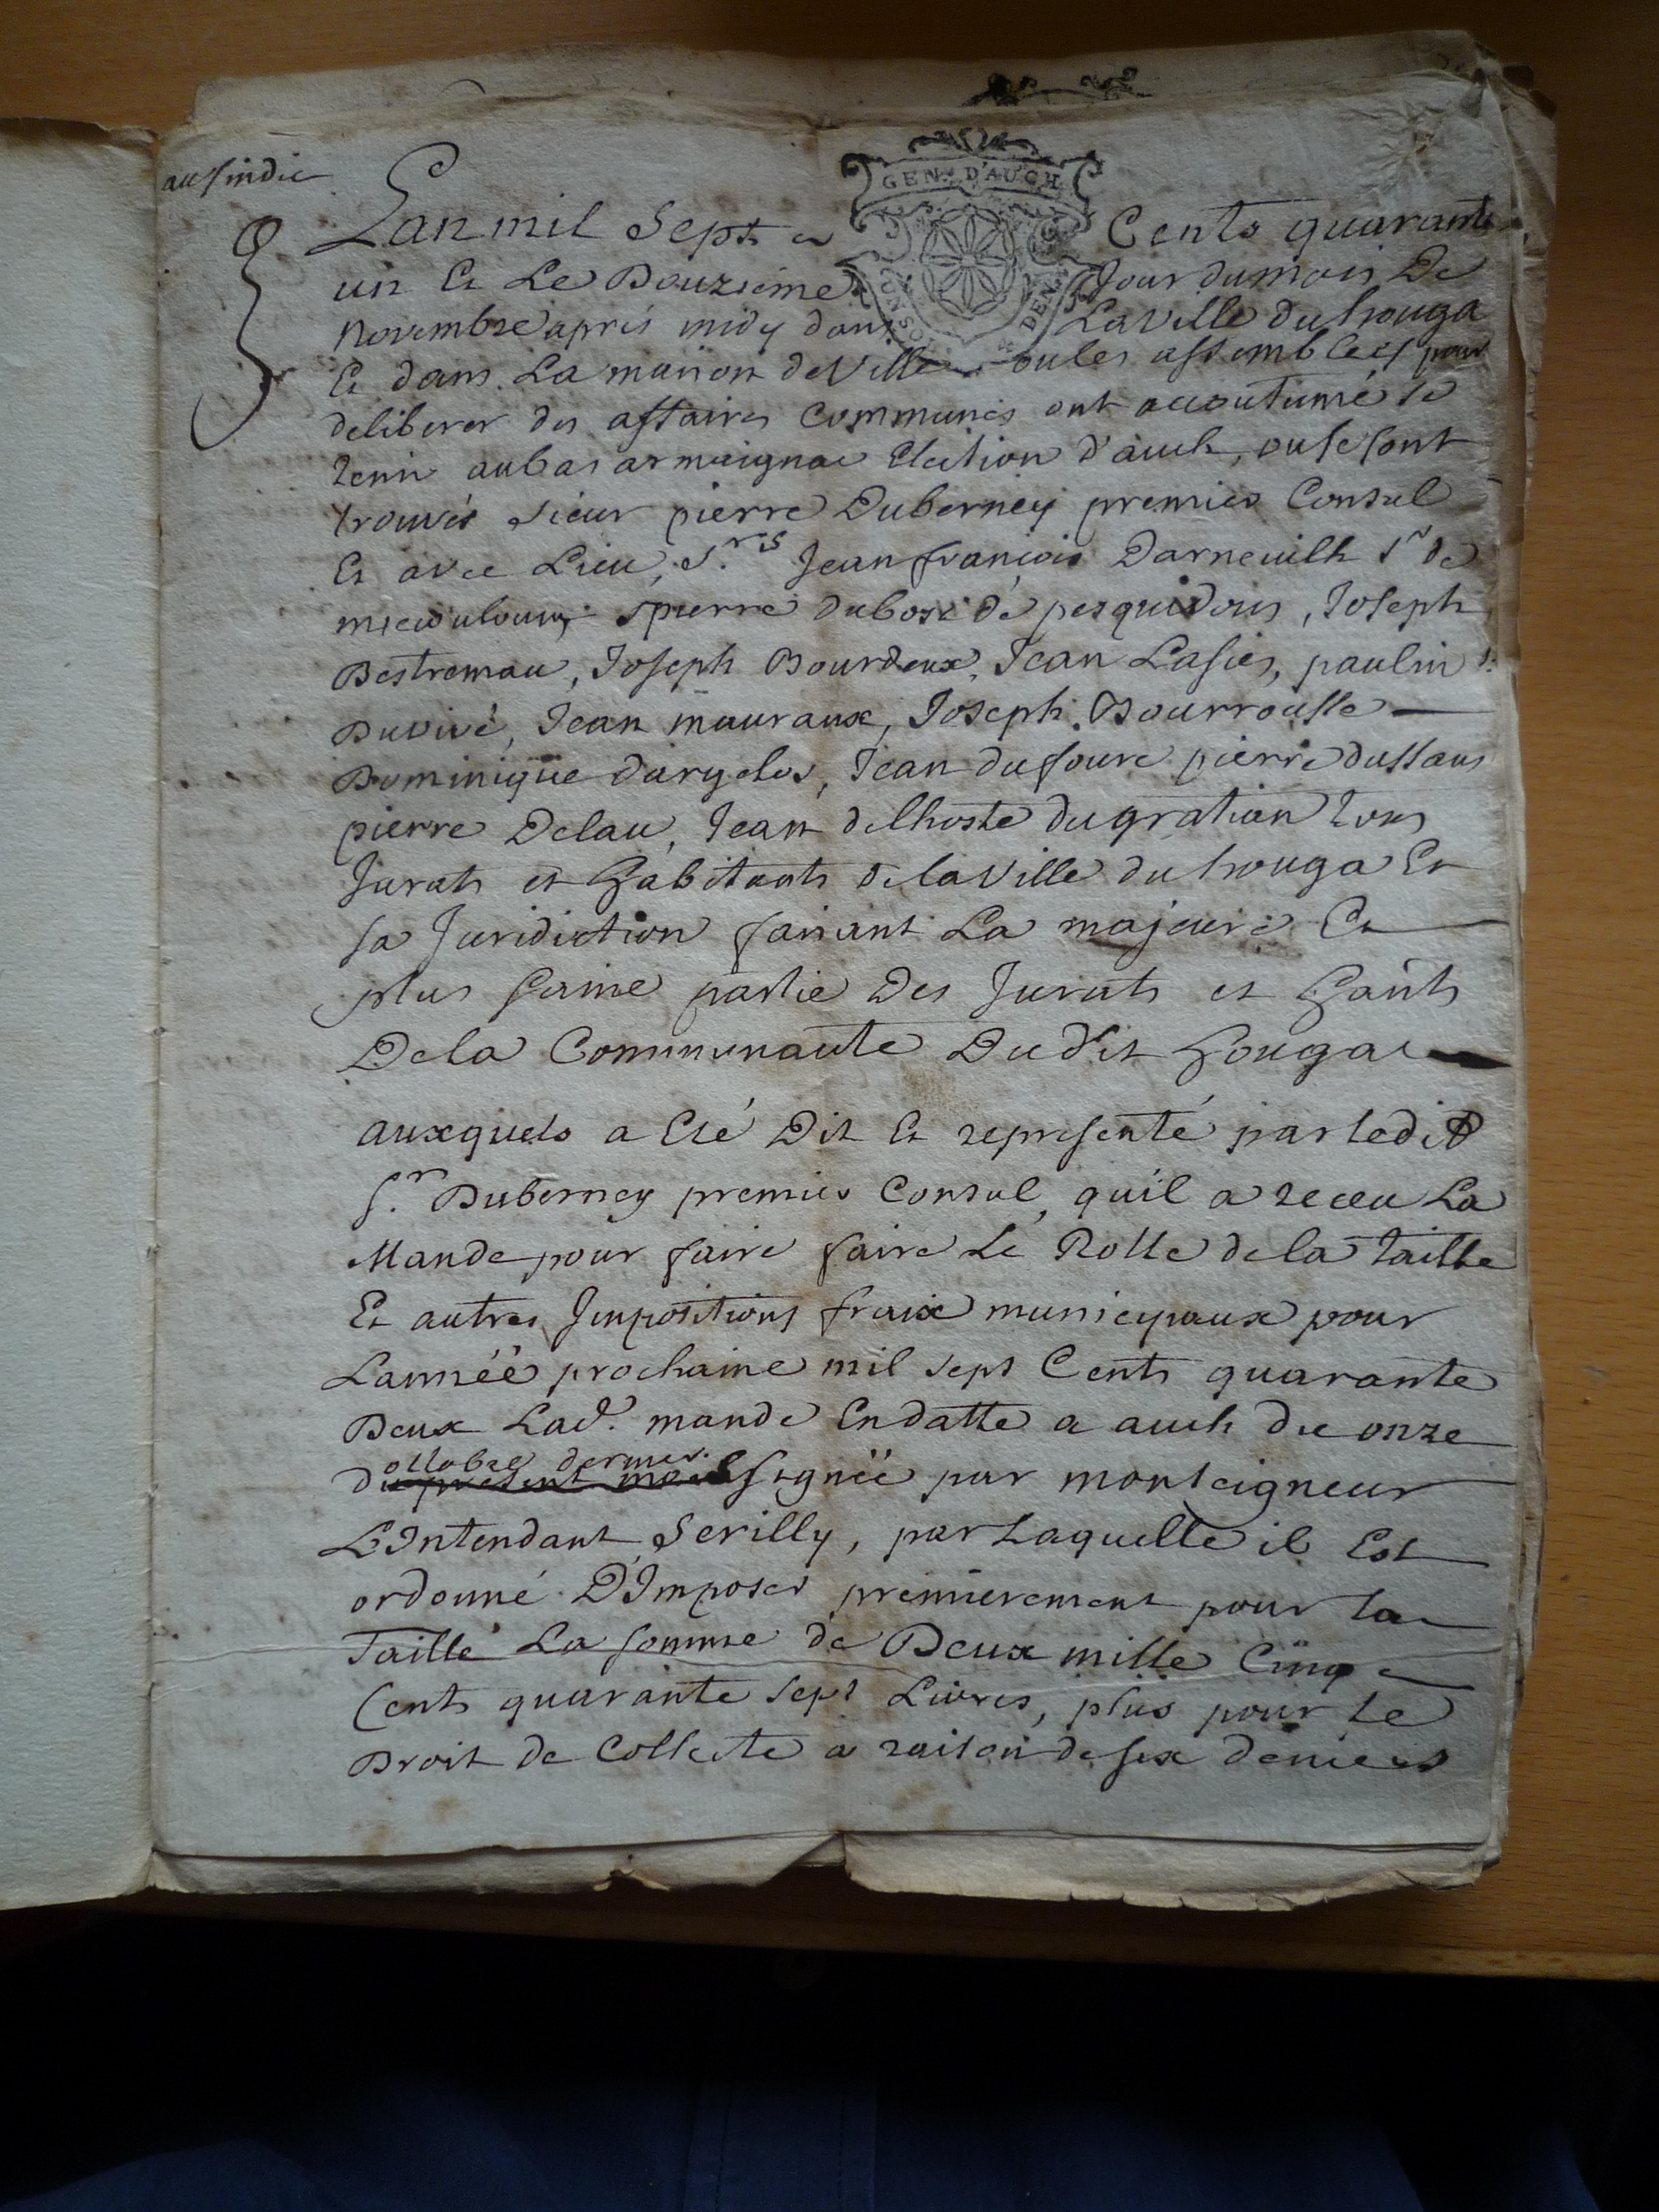 au sindic
GEN. D'AUCH
Lan mil Sept Cents quarante
un Et Le Douzieme Jour du mois De
Novembre aprés midy dans La Ville du houga
Et dans La maison de Ville ou les assemblees pour
deliberer des affaires Communes ont accoutumé se
tenir au bas armaignac Election d'auch, ou se sont
trouvés sieur pierre Duberney premier Consul
Et avec Lieu, S.rs Jean françois Darneuilh Sr de
pierre dubosc de pesquidous, Joseph
Bestremau, Joseph Bourdeux, Jean Lasies, paulin
Duvivé, Jean mauraux, Joseph Bourrousse
Dominique dargelos, Jean dufourc pierre dussans
pierre Delau, Jean delhoste du gratian tous
Jurats et habitants de la Ville du houga Et
sa Juridiction faisant La majeure Et
plus saine partie Des Jurats et hants
De la Communauté Dudit houga
auxquels a Eté Dit Et representé par ledit
S.r Duberney premier Consul, quil a receu La
Mande pour faire faire Le Rolle de la taille
Et autres Impositions fraix municipaux pour
Lannéé prochaine mil sept Cents quarante
Deux Lad. mande En datte a auch du onze
octobre dernier
du present mois signéé par monseigneur
L'Intendant Serilly, par Laquelle il Est
ordonné D'Imposer premierement pour la
Taille La somme de Deux mille Cinq
Cents quarante sept Livres, plus pour le
Droit de Collecte a raison de six deniers